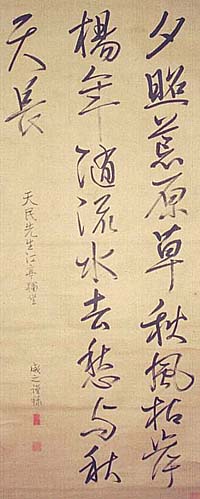 夕照荒原草秋風枯岸
楊年随流水去愁与秋
天長
天民先生江亭獨望
之謹